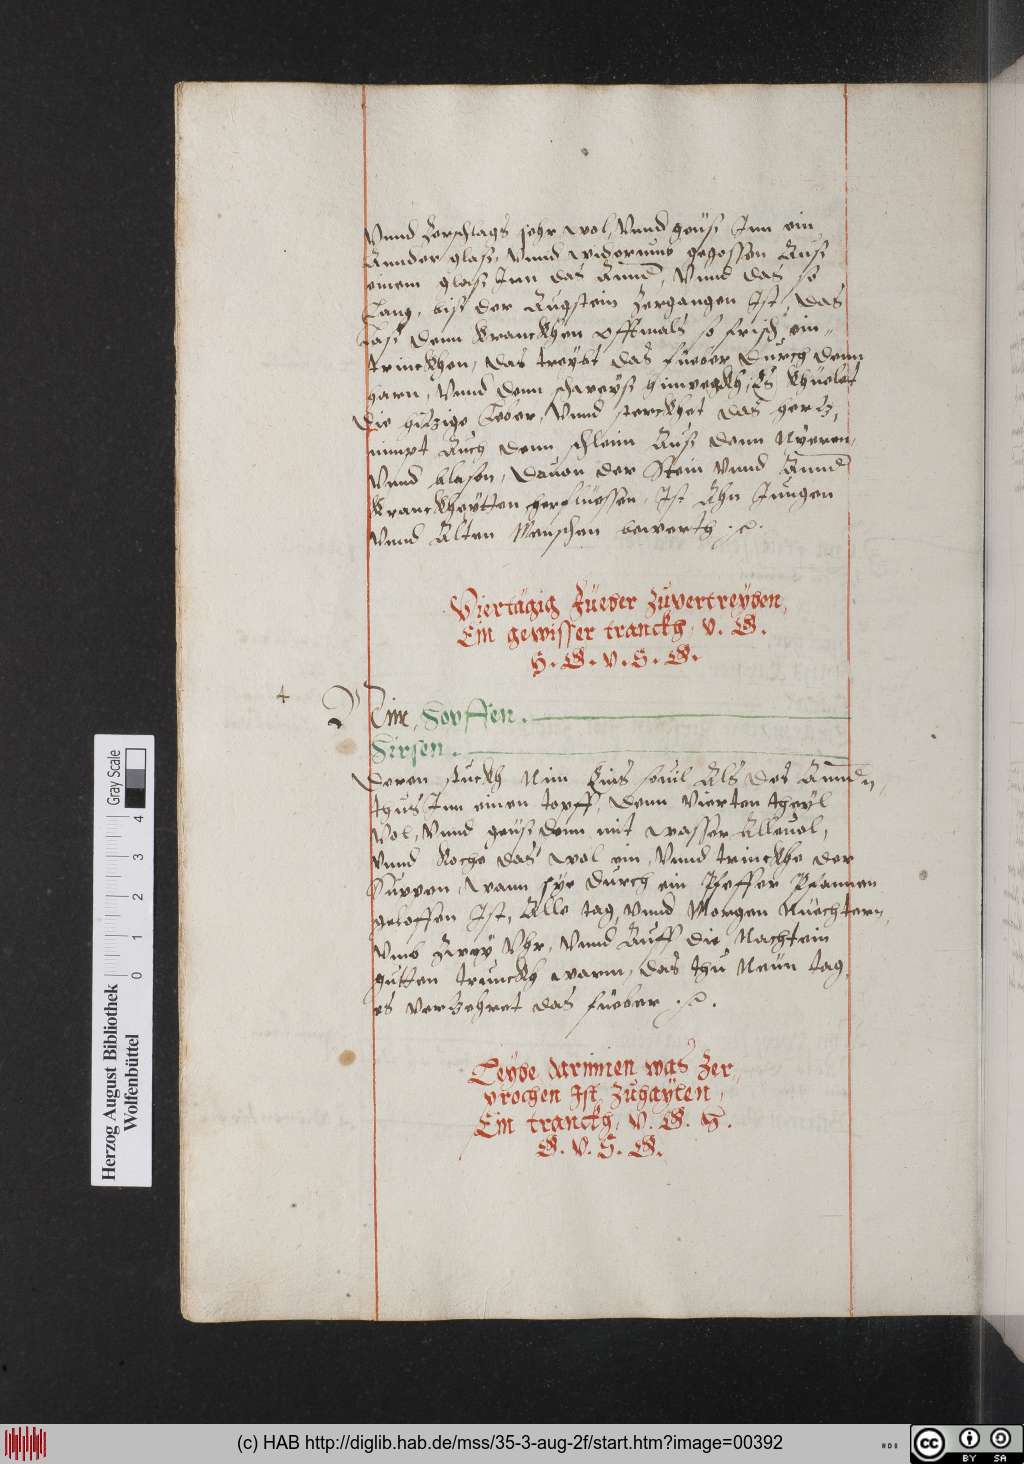 Vnnd zerschlags sehr wol, Vnnd geüß Inn ein
Annder glaß, Vnnd widerumb gegossen Auß
einem glaß Inn das Annd, Vnnd das so
Lang, biß der Augstein zergangen Ist, das
Laß denn Kranckhen offtmals so frisch ein„
trinckhen, das treybt das füeber durch denn
harn, Vnnd denn schweyß hinwegkh, Es khüelet
die hitzige Leber, Vnnd sterckhet das hertz,
nimpt Auch denn schleim Auß denn Nyeren,
Vnnd blasen, dauon der Stein Vnnd Annd
Kranckheytten herfliessen, Ist Ahn Jungen
Vnnd Alten Menschen bewerth.
Viertägig Füeber zuvertreyben,
Ein gewisser tranckh, V. G.
H. G. V. S. G.
Nim, Hopffen.
Hirsen.
deren stuckh Nim Eins souil Als des Annd'n,
thus Inn einen topff, denn vierten theyl
Vol, Vnnd geüß denn mit wasser Alleuol,
Vnnd Koche das wol ein, Vnnd trinckhe der
Suppen, wann sye durch ein Pfeffer Pfannen
geloffen Ist, Alle tag, Vnnd Morgen Nüechtern,
Vmb Zwey Vhr, Vnnd Auff die Nacht ein
gutten trunckh warm, das thu Neün tag,
es verzehret das füeber.
Leybe darinnen was Zer„
brochen Ist, Zuhaylen,
Ein tranckh, V. G. H.
G. V. S. G.
Herzog August Bibliothek
Wolfenbüttel
0 1 2 3 4
Gray Scale
(c) HAB http://diglib.hab.de/mss/35-3-aug-2f/start.htm?image=00392
cc BY SA